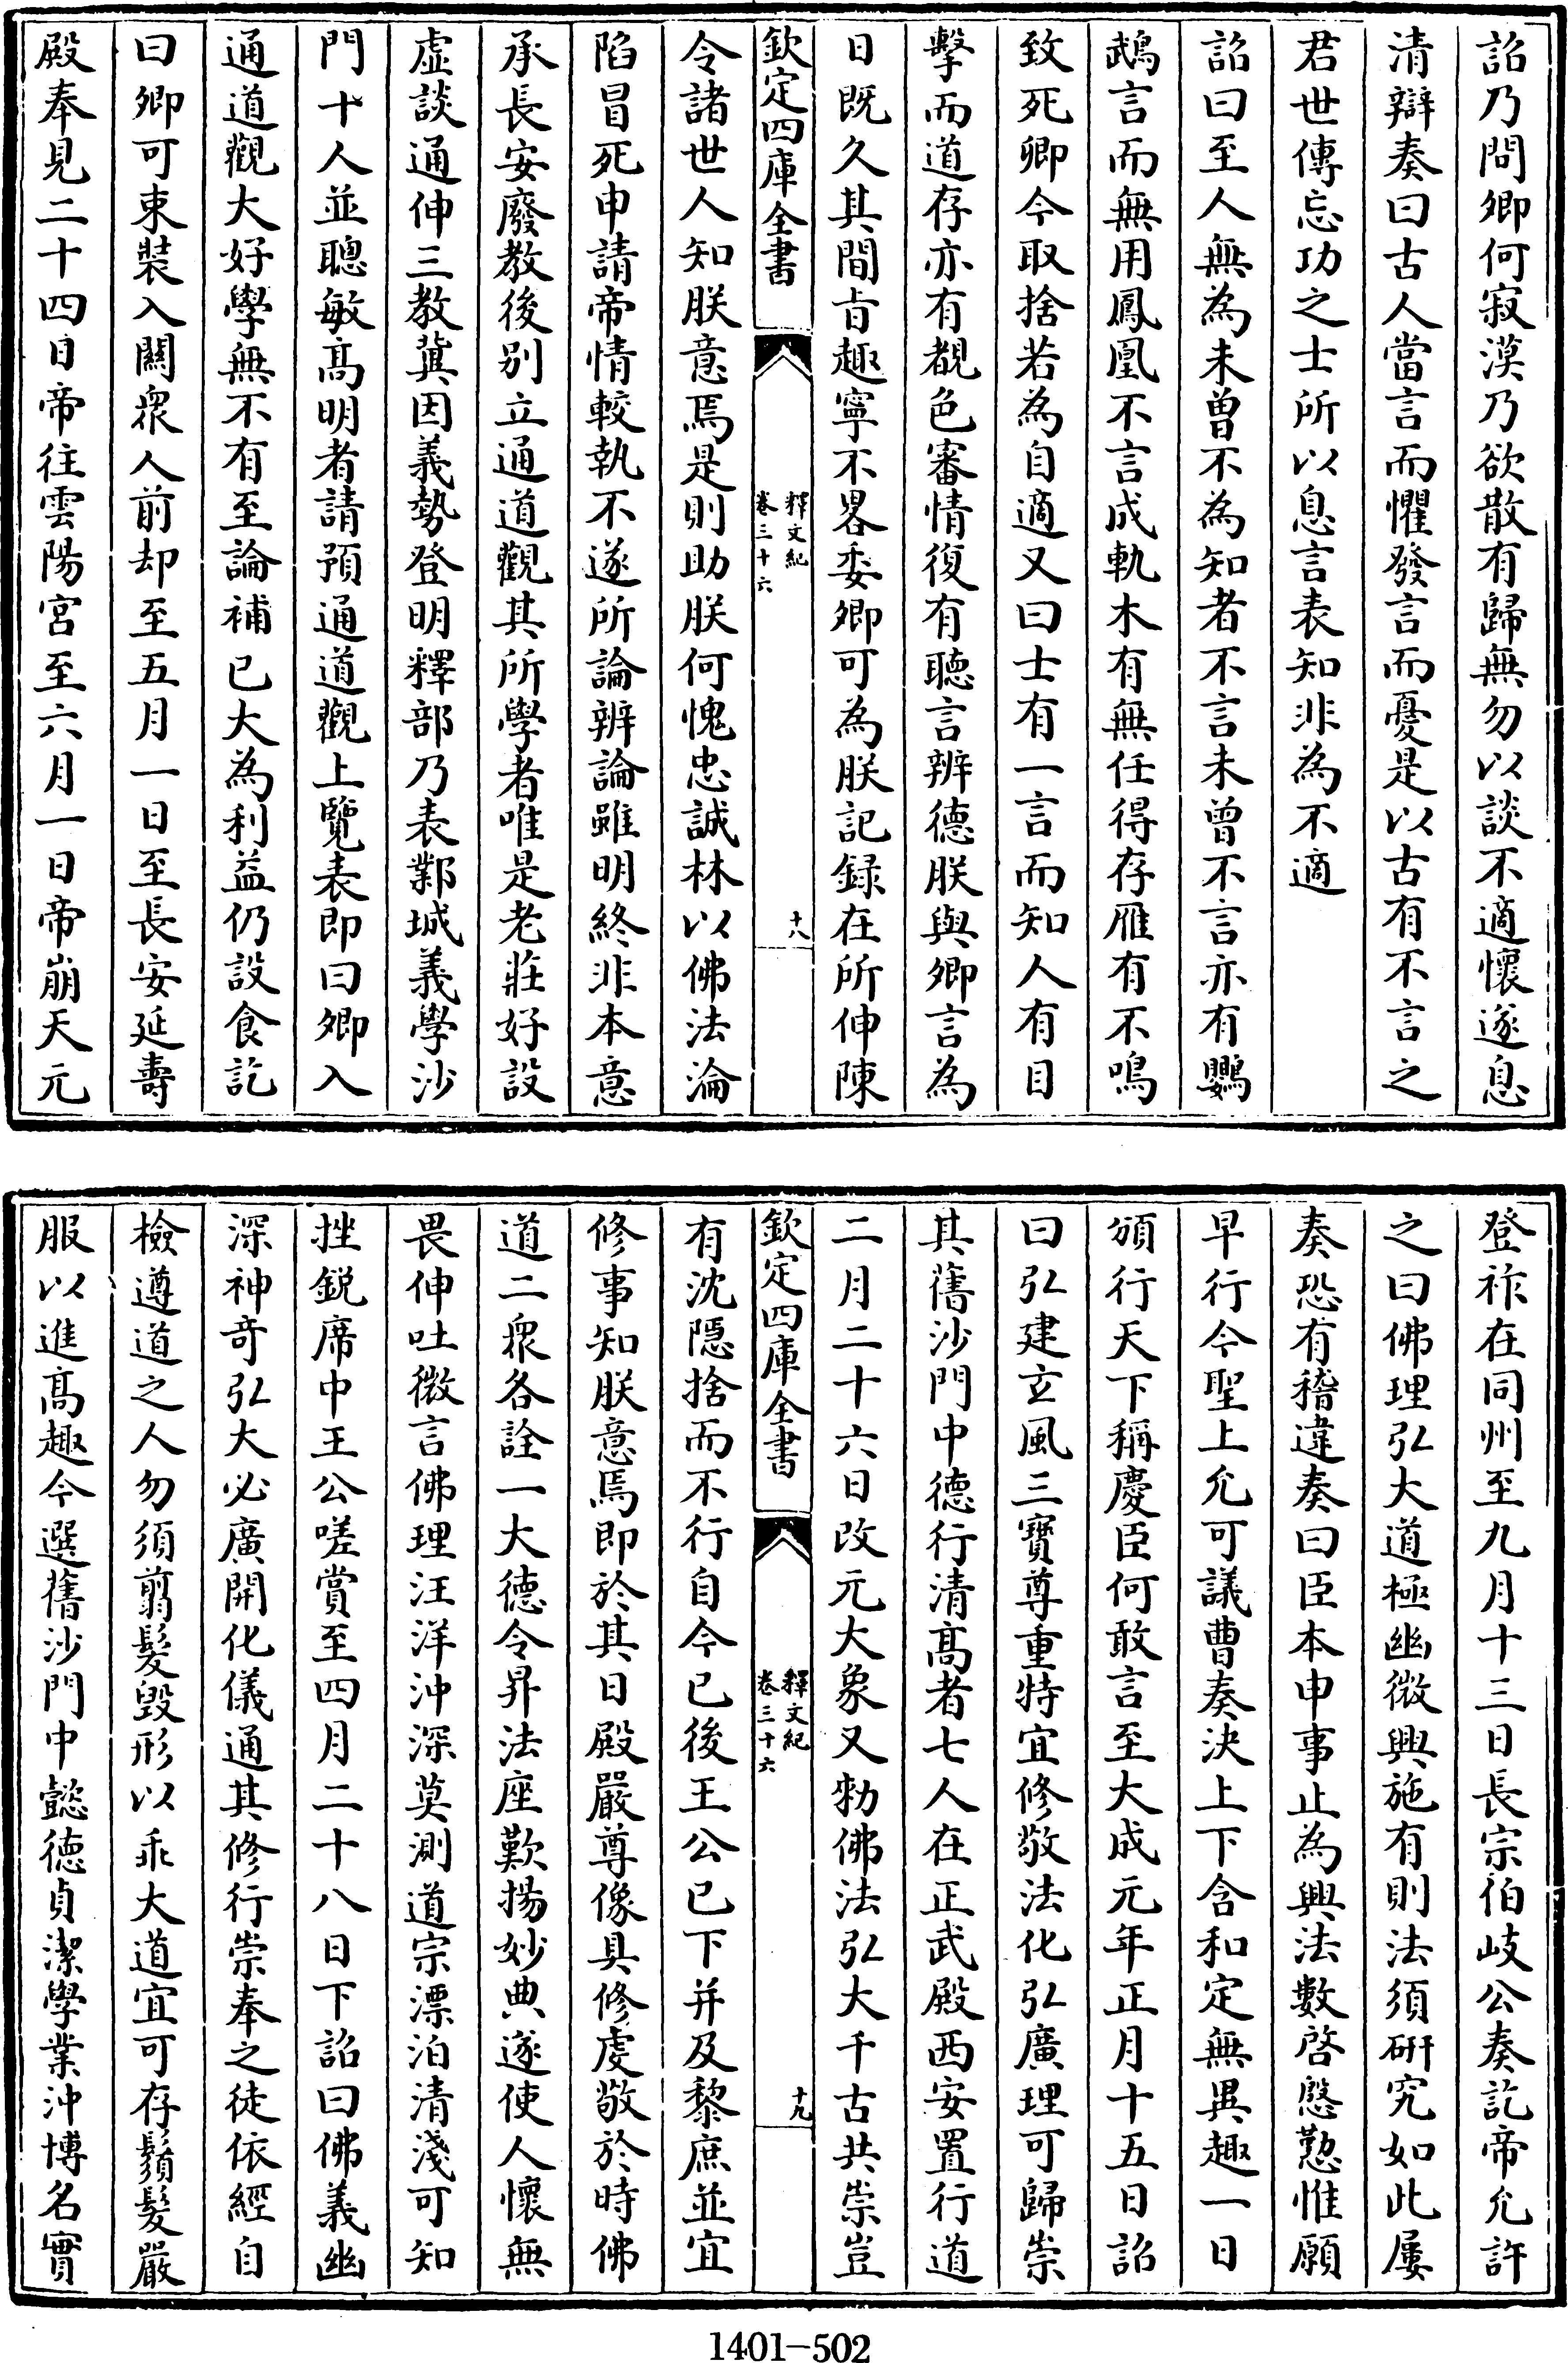 詔乃問卿何寂漠乃欲散有歸無勿以談不適懷遂息
清辯奏曰古人當言而懼發言而憂是以古有不言之
君世傳忘功之士所以息言表知非為不適
詔曰至人無為未曾不為知者不言未曾不言亦有鸚
鵡言而無用鳳凰不言成軌木有無任得存雁有不鳴
致死卿今取捨若為自適又曰士有一言而知人有目
擊而道存亦有覩色審情復有聽言辨德朕與卿言為
日既久其間旨趣寧不畧委卿可為朕記録在所伸陳
欽定四庫全書
釋文紀
卷三十六
十八
令諸世人知朕意焉是則助朕何愧忠誠林以佛法淪
陷冒死申請帝情較執不遂所論辨論雖明終非本意
承長安廢教後别立通道觀其所學者唯是老莊好設
虛談通伸三教冀因義勢登明釋部乃表鄴城義學沙
門十人並聰敏髙明者請預通道觀上覽表即曰卿入
通道觀大好學無不有至論補已大為利益仍設食訖
曰卿可束裝入關衆人前却至五月一日至長安延壽
殿奉見二十四日帝往雲陽宮至六月一日帝崩天元
登祚在同州至九月十三日長宗伯岐公奏訖帝允許
之曰佛理弘大道極幽微興施有則法須研究如此屢
奏恐有稽違奏曰臣本申事止為興法數啓慇懃惟願
早行今聖上允可議曹奏決上下含和定無異趣一日
頒行天下稱慶臣何敢言至大成元年正月十五日詔
曰弘建玄風三寶尊重特宜修敬法化弘廣理可歸崇
其舊沙門中德行清髙者七人在正武殿西安置行道
二月二十六日改元大象又勅佛法弘大千古共崇豈
欽定四庫全書
釋文紀
卷三十六
十九
有沈隱捨而不行自今已後王公已下并及黎庶並宜
修事知朕意焉即於其日殿嚴尊像具修虔敬於時佛
道二衆各詮一大德令昇法座歎揚妙典遂使人懷無
畏伸吐微言佛理汪洋沖深莫測道宗漂泊清淺可知
挫鋭席中王公嗟賞至四月二十八日下詔曰佛義幽
深神竒弘大必廣開化儀通其修行崇奉之徒依經自
檢遵道之人勿須翦髮毀形以乖大道宜可存鬚髮嚴
服以進髙趣今選舊沙門中懿德貞潔學業沖博名實
1401-502